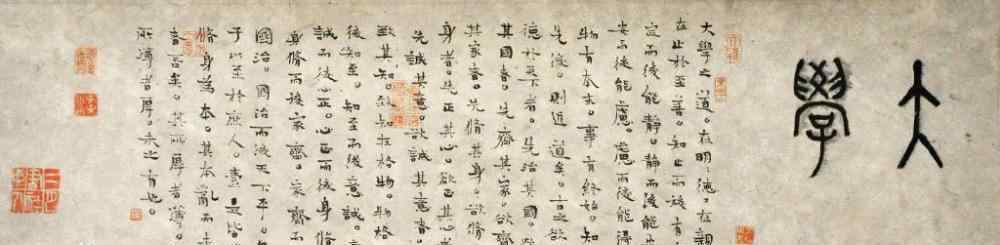 大學
大學之道。在明〻德。在親
在止於至善。知止而後有
定而後能靜。靜而後能
安而後能慮。慮而後能得
物有本末。事有終始。知
先後。則近道矣。古之欲
德於天下者。先治其國。欲
其國者。先齊其家。欲齊
其家者。先脩其身。欲脩
身者。先正其心。欲正其心
先誠其意。欲誠其意者。
致其知。致知在格物。物格
後知至。知至而後意誠。
誠而後心正。心正而後身脩
身脩而後家齊。家齊而
國治。國治而後天下平。
子以至於庶人。壹是皆
脩身為本。其本亂而末
者否矣。其所厚者薄。
所薄者厚。未之有也。